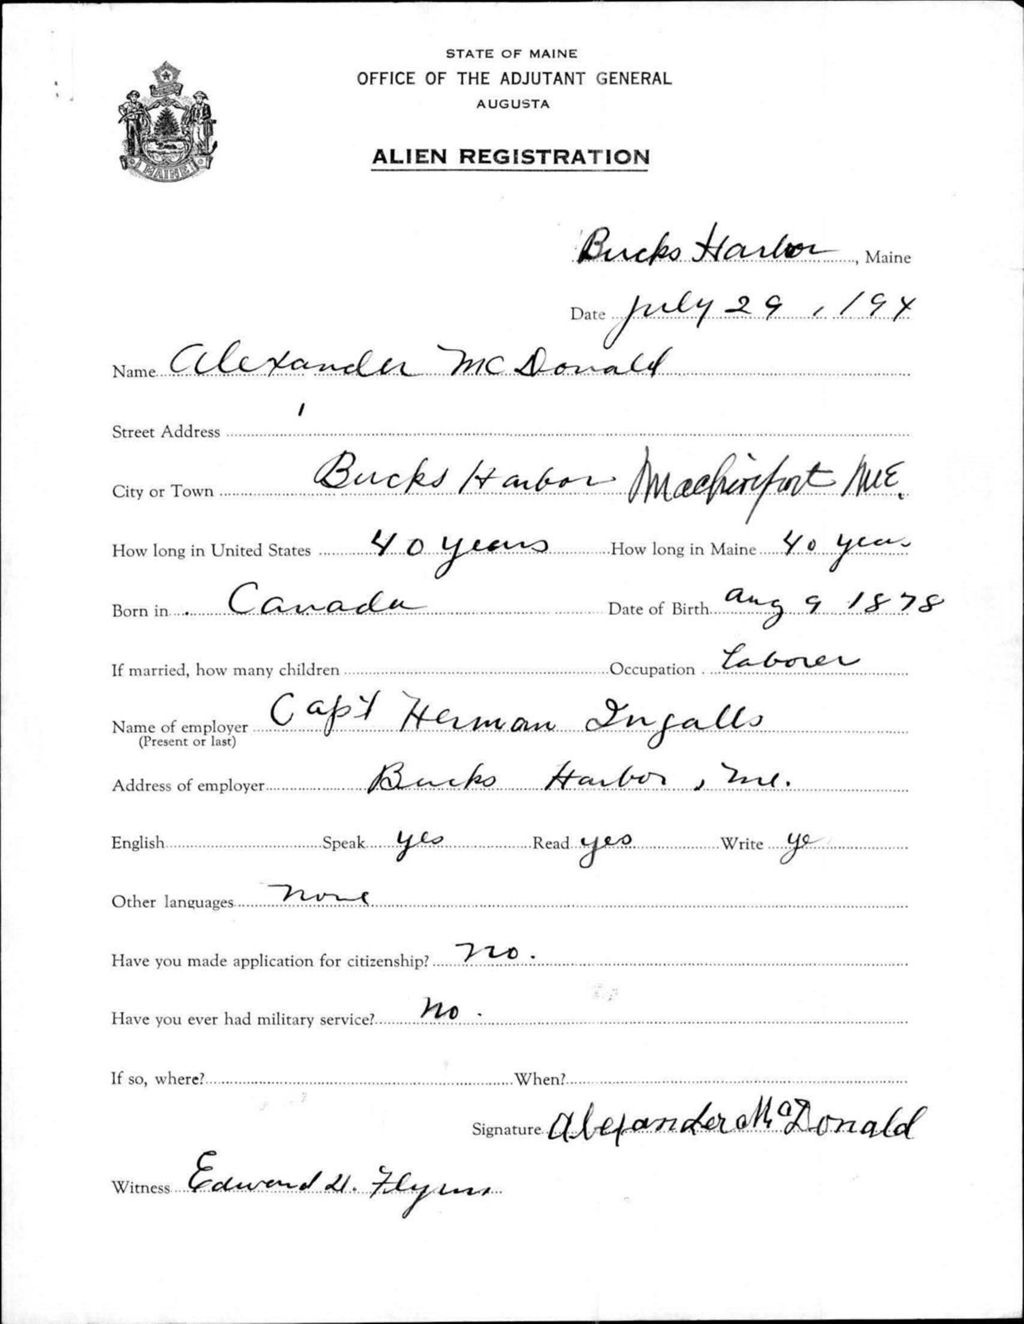 STATE OF MAINE
OFFICE OF THE ADJUTANT GENERAL
AUGUSTA
ALIEN REGISTRATION
MAINE
Bucks Harbor, Maine
Date July 29, 194
Name Alexander McDonald
Street Address
City or Town Bucks Harbor Machiasport Me.
How long in United States 40 years How long in Maine 40 years
Born in Canada Date of Birth Aug 9 1878
If married, how many children Occupation Laborer
Name of employer Capt Herman Ingalls
(Present or last)
Address of employer Bucks Harbor, Me.
English Speak yes Read yes Write ye
Other languages None
Have you made application for citizenship? No.
Have you ever had military service? No.
If so, where? When?
Signature Alexander McDonald
Witness Edward H. Flynn